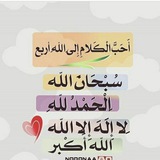 أَحَبُّ الْكَلَامِ إِلَى اللهِ أَرْبَع
سُبْحَانَ اللَّه
الْحَمْدُ لِلَّه
لَا إِلَهَ إِلَّا اللَّه
اللَّهُ أَكْبَر